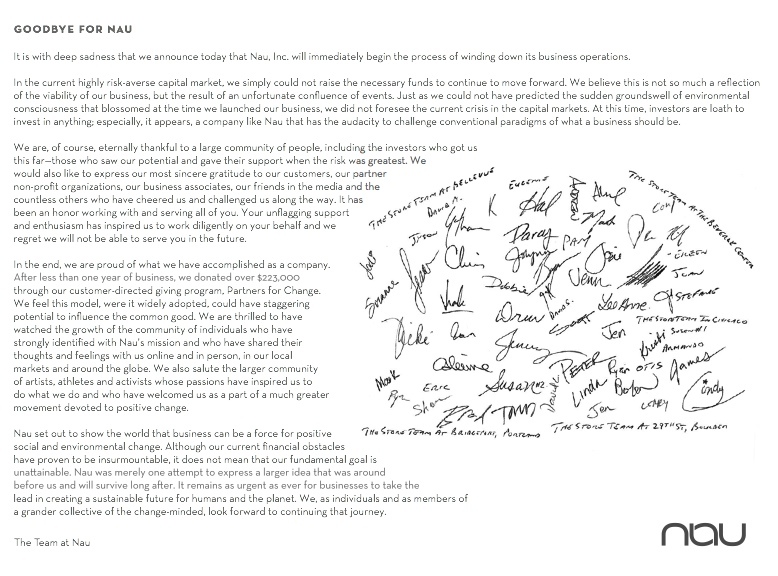 GOODBYE FOR NAU
It is with deep sadness that we announce today that Nau, Inc. will immediately begin the process of winding down its business operations.
In the current highly risk-averse capital market, we simply could not raise the necessary funds to continue to move forward. We believe this is not so much a reflection
of the viability of our business, but the result of an unfortunate confluence of events. Just as we could not have predicted the sudden groundswell of environmental
consciousness that blossomed at the time we launched our business, we did not foresee the current crisis in the capital markets. At this time, investors are loath to
invest in anything; especially, it appears, a company like Nau that has the audacity to challenge conventional paradigms of what a business should be.
We are, of course, eternally thankful to a large community of people, including the investors who got us
this far—those who saw our potential and gave their support when the risk was greatest. We
would also like to express our most sincere gratitude to our customers, our partner
non-profit organizations, our business associates, our friends in the media and the
countless others who have cheered us and challenged us along the way. It has
been an honor working with and serving all of you. Your unflagging support
and enthusiasm has inspired us to work diligently on your behalf and we
regret we will not be able to serve you in the future.
In the end, we are proud of what we have accomplished as a company.
After less than one year of business, we donated over $223,000
through our customer-directed giving program, Partners for Change.
We feel this model, were it widely adopted, could have staggering
potential to influence the common good. We are thrilled to have
watched the growth of the community of individuals who have
strongly identified with Nau's mission and who have shared their
thoughts and feelings with us online and in person, in our local
markets and around the globe. We also salute the larger community
of artists, athletes and activists whose passions have inspired us to
do what we do and who have welcomed us as a part of a much greater
movement devoted to positive change.
Nau set out to show the world that business can be a force for positive
social and environmental change. Although our current financial obstacles
have proven to be insurmountable, it does not mean that our fundamental goal is
unattainable. Nau was merely one attempt to express a larger idea that was around
before us and will survive long after. It remains as urgent as ever for businesses to take the
lead in creating a sustainable future for humans and the planet. We, as individuals and as members of
a grander collective of the change-minded, look forward to continuing that journey.
The Team at Nau
THE STORE TEAM AT BELLEVUE
EUGENIE
K
Hal
Mark
PAM
Chris
Debbie
Jenn
EILEEN
Juan
Drew
LeeAnne
STEFANIE
THE STORE TEAM IN CHICAGO
Vicki
Jen
Kristi
ARMANDO
PETER
Ryan OTIS
James
Mark
ERIC
Susanne
Linda
Cindy
Brad
TODD
Jen
THE STORE TEAM AT BRIDGEPORT, PORTLAND
THE STORE TEAM AT 29TH ST, BOULDER
nau